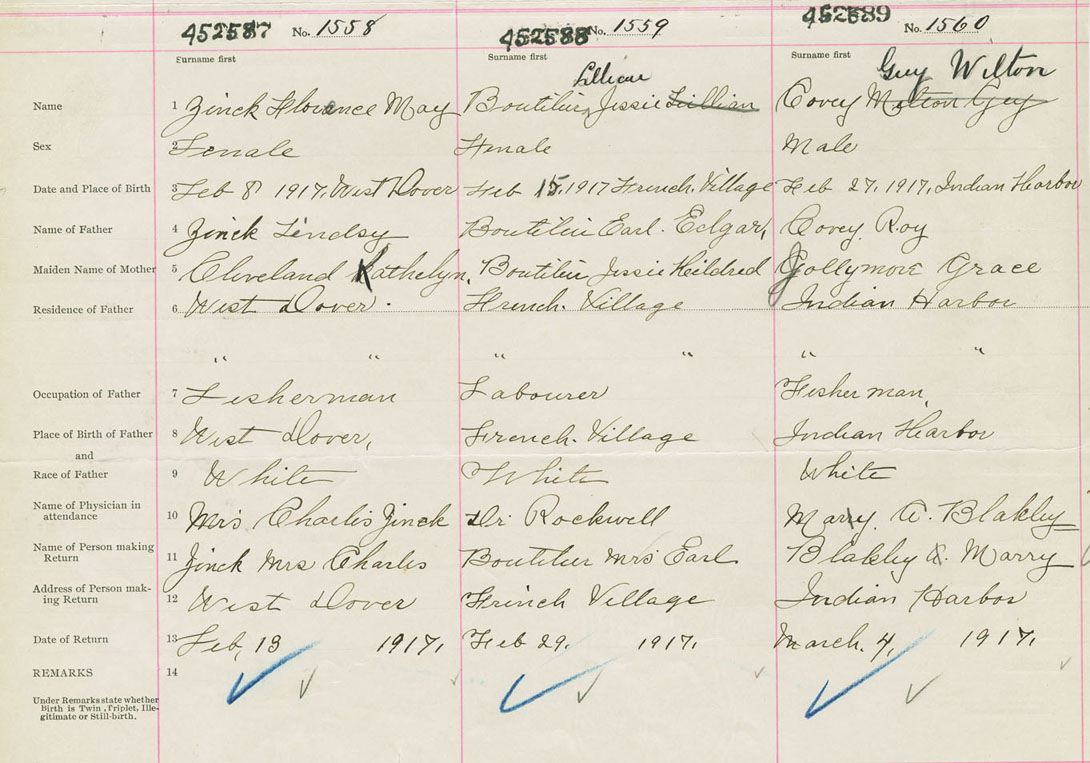 452587 No. 1558 452588 No. 1559 452589 No. 1560
Surname first Surname first Surname first
Lillian Guy Wilton
Name 1 Zinck Florence May Boutilier Jessie Lillian Covey Milton Guy
Sex 2 Female Female Male
Date and Place of Birth 3 Feb 8 1917, West Dover Feb 15, 1917 French Village Feb 27, 1917, Indian Harbor
Name of Father 4 Zinck Lindsy Boutilier Earl. Edgar, Covey Roy
Maiden Name of Mother 5 Cleveland Kathelyn, Boutilier Jessie Mildred Gollymore Grace
Residence of Father 6 West Dover. French. Village Indian Harbor
" " " " " "
Occupation of Father 7 Fisherman Labourer Fisherman,
Place of Birth of Father 8 West Dover, French. Village Indian Harbor
and
Race of Father 9 White White White
Name of Physician in
attendance 10 Mrs Charlis Zinck Dr Rockwell Marry A. Blakley
Name of Person making
Return 11 Zinck Mrs Charlis Boutilier Mrs Earl Blakley A. Marry
Address of Person mak-
ing Return 12 West Dover French Village Indian Harbor
Date of Return 13 Feb, 13 1917, Feb 29, 1917, March. 4, 1917,
REMARKS 14
Under Remarks state whether
Birth is Twin, Triplet, Ille-
gitimate or Still-birth.